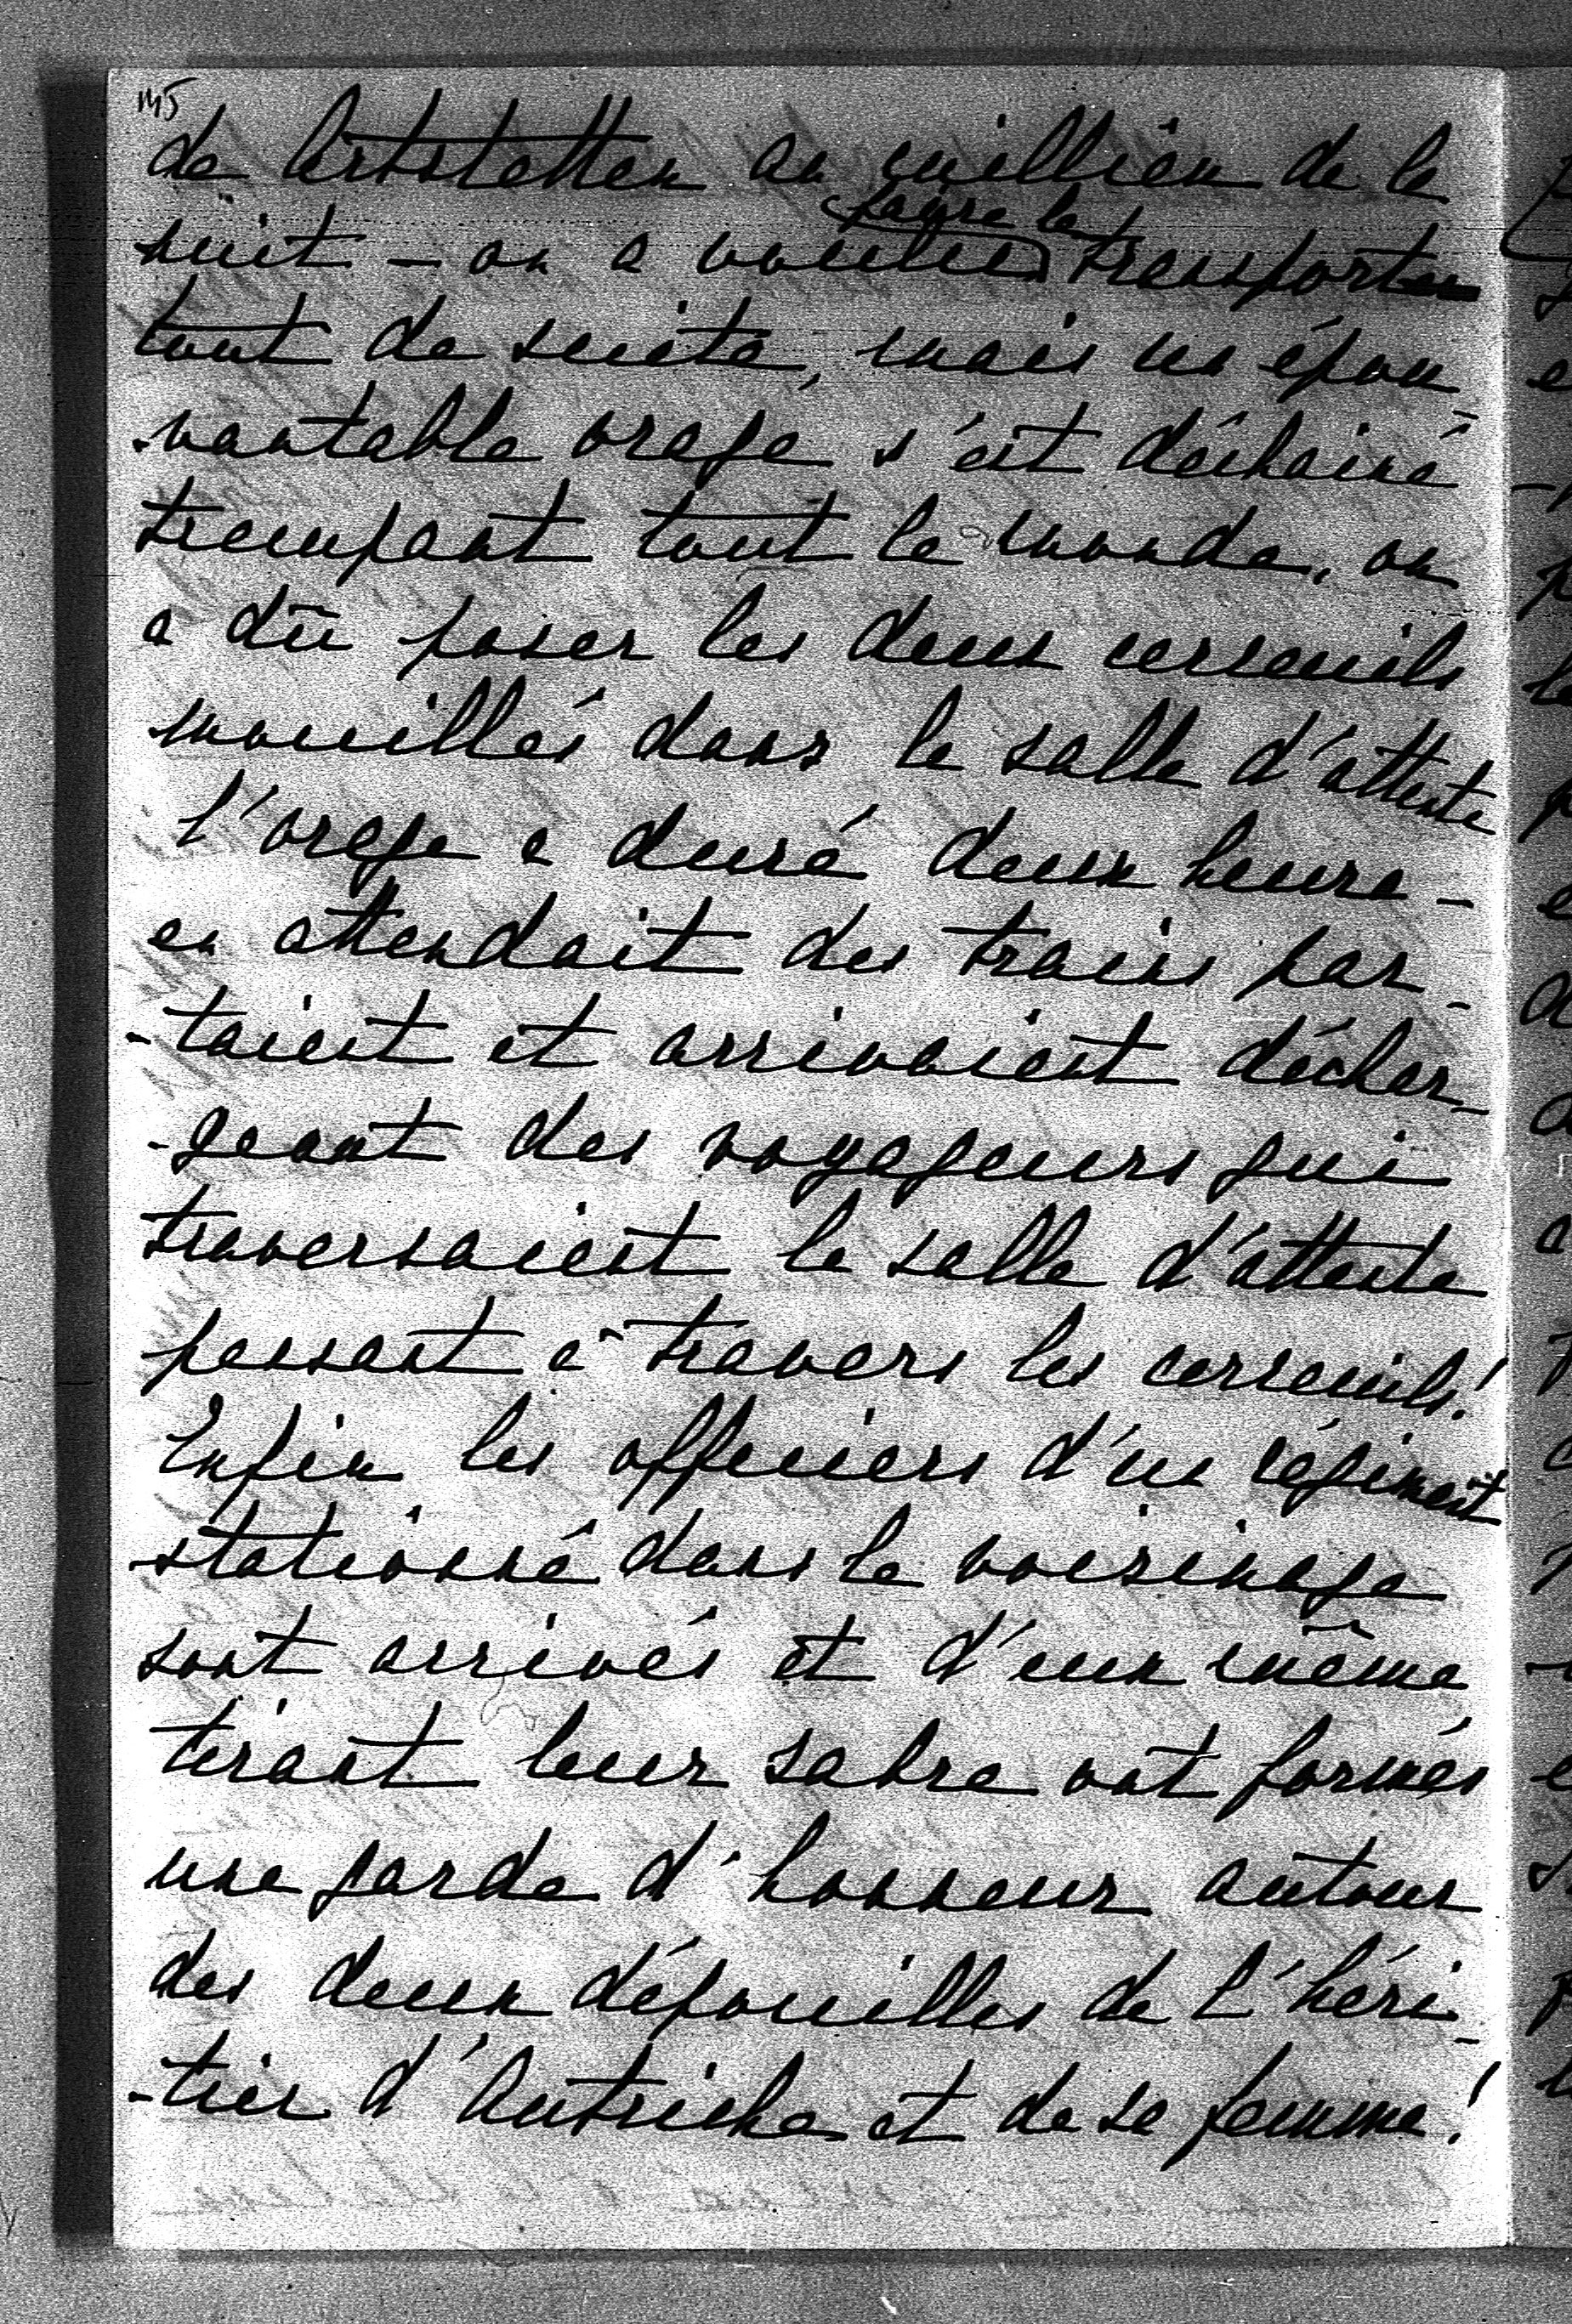 145
de Artstetten au millieu de la
faire le
nuit – on a voulu transporter
tout de suite, mais un épou-
-vantable orage s'est déchainé
trempant tout le monde. on
a dû poser les deux cerceuils
mouillés dans la salle d'attente
l'orage a duré deux heure –
en attendait des trains par-
-taient et arrivaient déchar-
-geant des voyageurs qui
traversaient la salle d'attente
passant à travers les cerceuils!
Enfin les officiers d'un régiment
stationné dans le voisinage
sont arrivés et d'eux même
tirant leur sabre ont formés
une garde d'honneur autour
des deux dépouilles de l'héri-
-tier d'Autriche et de sa femme!